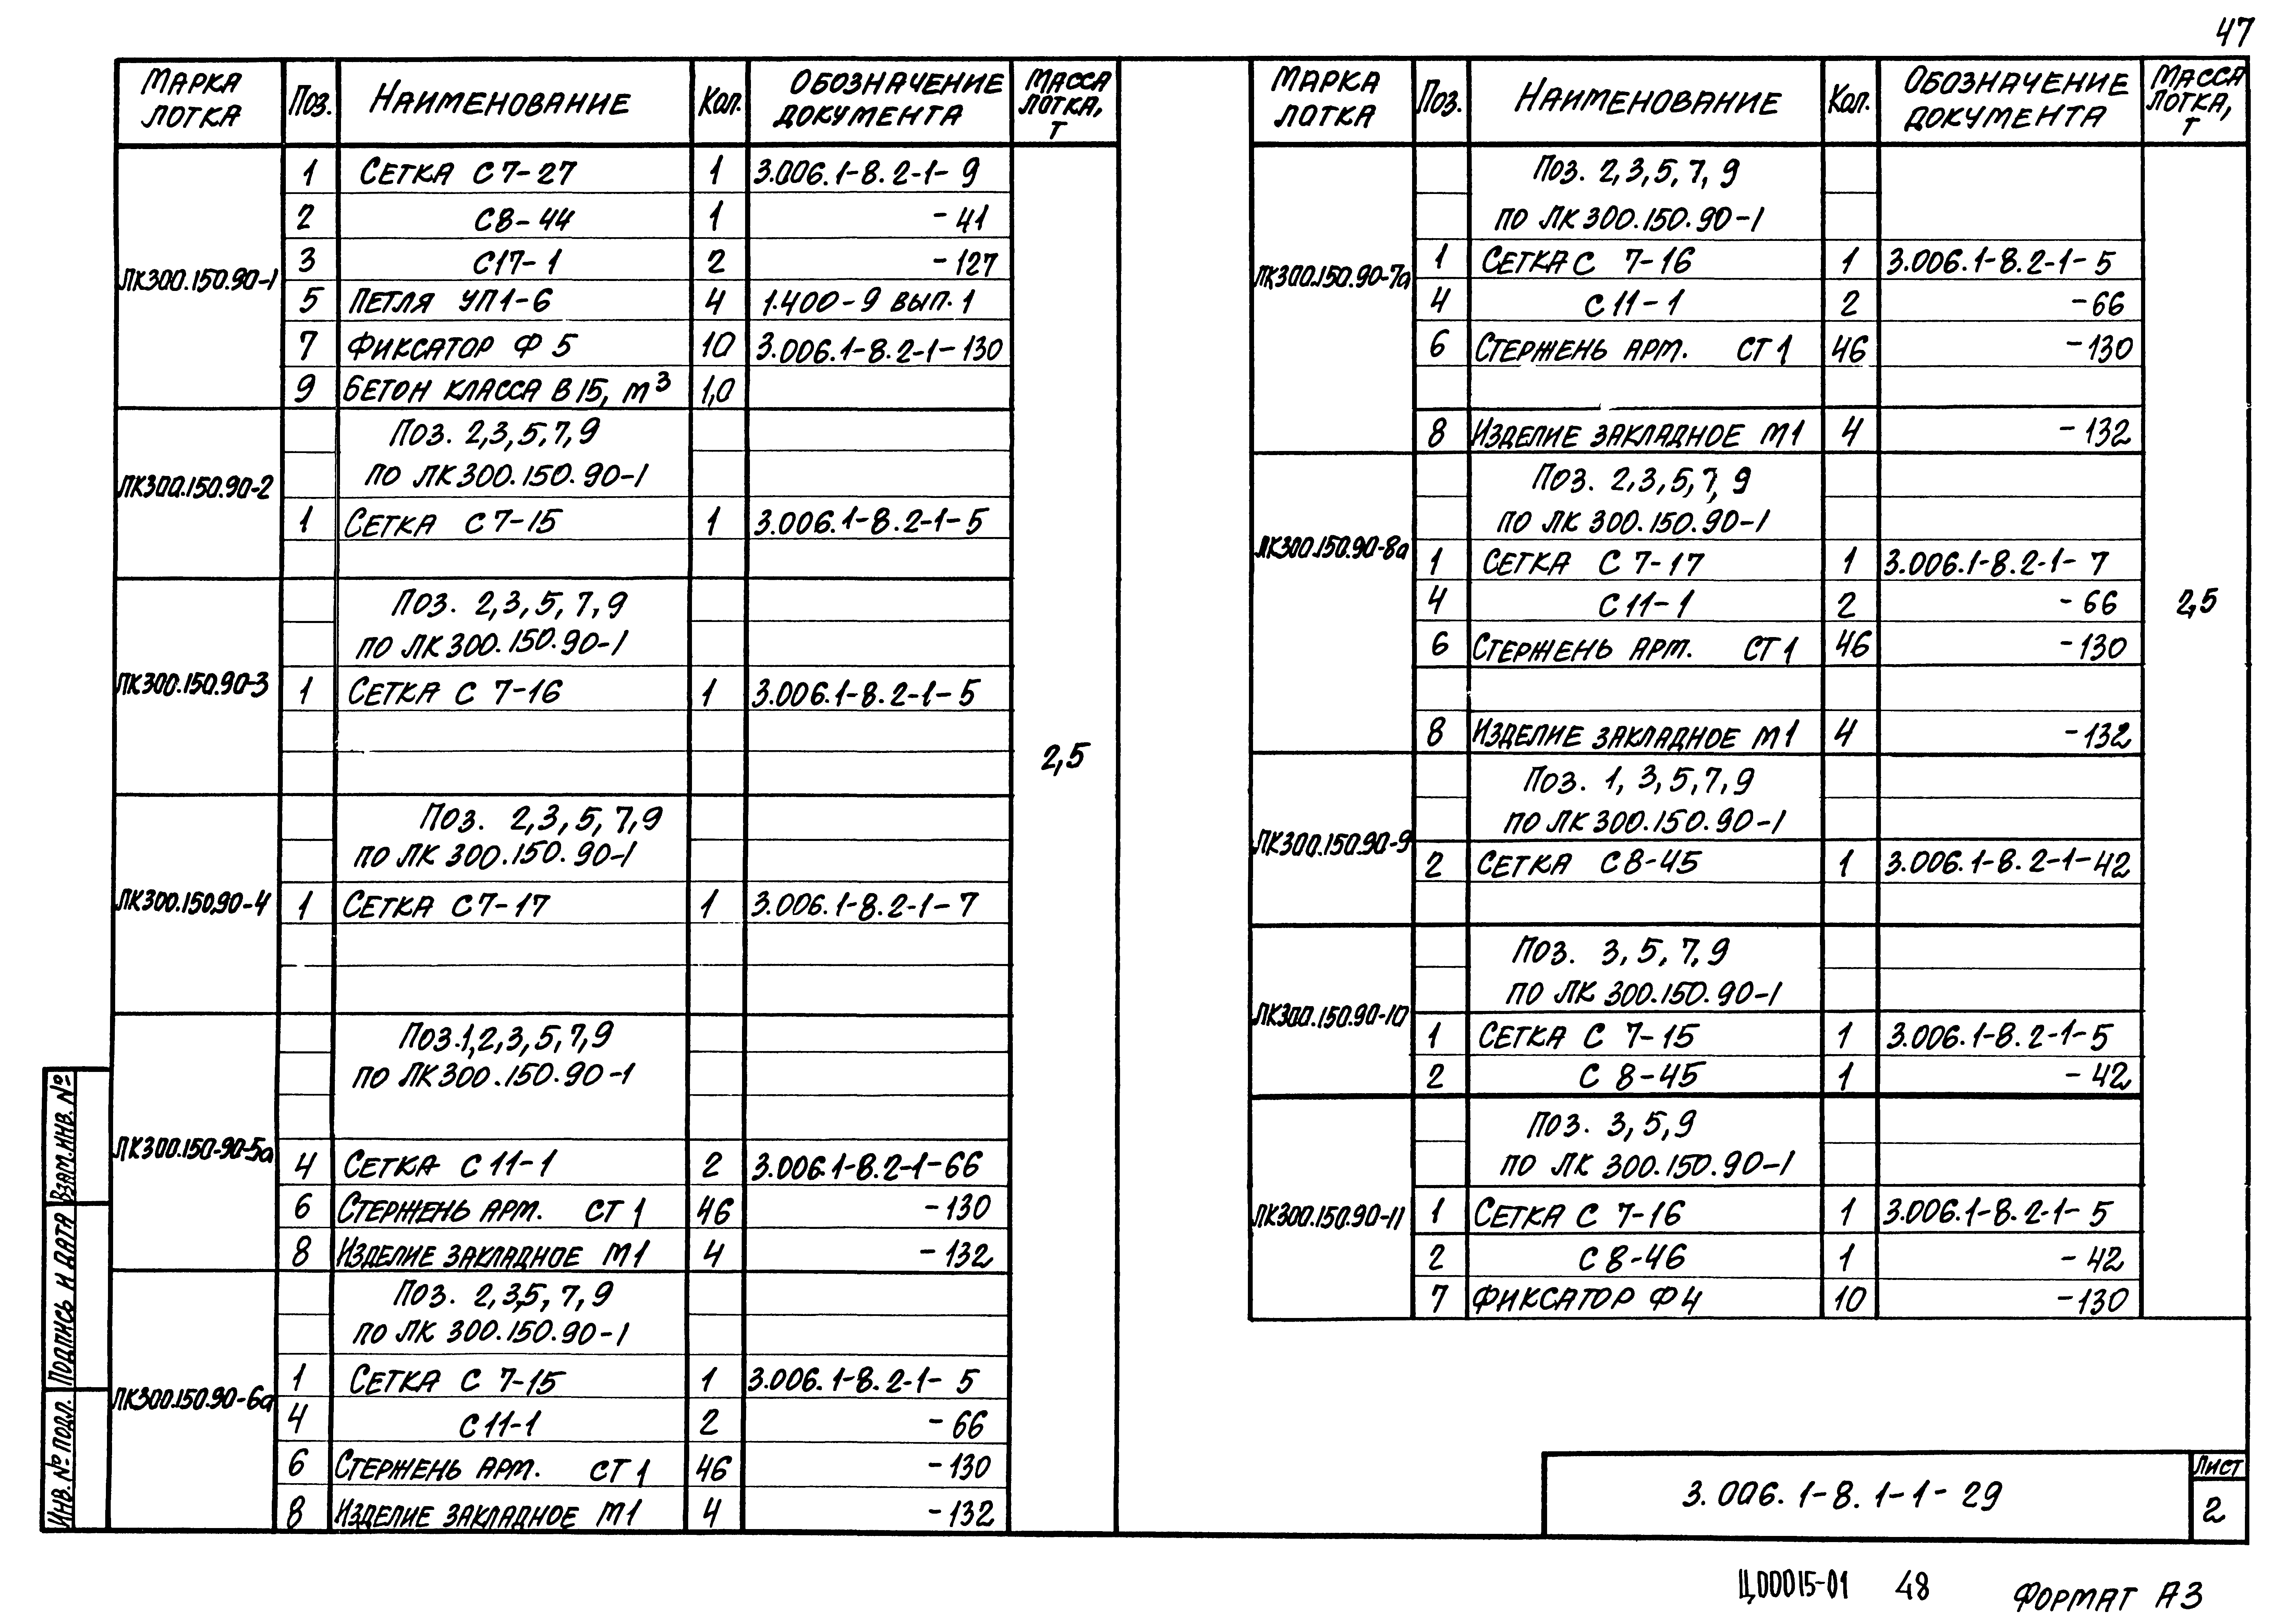 47
МАРКА ЛОТКА | ПОЗ. | НАИМЕНОВАНИЕ | КОЛ. | ОБОЗНАЧЕНИЕ ДОКУМЕНТА | МАССА ЛОТКА, Т
ЛК300.150.90-1
1 СЕТКА С7-27 1 3.006.1-8.2-1-9
2 С8-44 1 -41
3 С17-1 2 -127
5 ПЕТЛЯ УП1-6 4 1.400-9 ВЫП.1
7 ФИКСАТОР Ф5 10 3.006.1-8.2-1-130
9 БЕТОН КЛАССА В15, м³ 1,0
ЛК300.150.90-2
ПОЗ. 2,3,5,7,9
ПО ЛК300.150.90-1
1 СЕТКА С7-15 1 3.006.1-8.2-1-5
ЛК300.150.90-3
ПОЗ. 2,3,5,7,9
ПО ЛК300.150.90-1
1 СЕТКА С 7-16 1 3.006.1-8.2-1-5
2,5
ЛК300.150.90-4
ПОЗ. 2,3,5,7,9
ПО ЛК 300.150.90-1
1 СЕТКА С7-17 1 3.006.1-8.2-1-7
ЛК300.150-90-5а
ПОЗ.1,2,3,5,7,9
ПО ЛК300.150.90-1
4 СЕТКА С11-1 2 3.006.1-8.2-1-66
6 СТЕРЖЕНЬ АРМ. СТ1 46 -130
8 ИЗДЕЛИЕ ЗАКЛАДНОЕ М1 4 -132
ЛК300.150.90-6а
ПОЗ. 2,3,5,7,9
ПО ЛК 300.150.90-1
1 СЕТКА С 7-15 1 3.006.1-8.2-1-5
4 С11-1 2 -66
6 СТЕРЖЕНЬ АРМ. СТ1 46 -130
8 ИЗДЕЛИЕ ЗАКЛАДНОЕ М1 4 -132
МАРКА ЛОТКА | ПОЗ. | НАИМЕНОВАНИЕ | КОЛ. | ОБОЗНАЧЕНИЕ ДОКУМЕНТА | МАССА ЛОТКА, Т
ЛК300.150.90-7а
ПОЗ. 2,3,5,7,9
ПО ЛК300.150.90-1
1 СЕТКА С 7-16 1 3.006.1-8.2-1-5
4 С11-1 2 -66
6 СТЕРЖЕНЬ АРМ. СТ1 46 -130
8 ИЗДЕЛИЕ ЗАКЛАДНОЕ М1 4 -132
ЛК300.150.90-8а
ПОЗ. 2,3,5,7,9
ПО ЛК 300.150.90-1
1 СЕТКА С7-17 1 3.006.1-8.2-1-7
4 С11-1 2 -66
2,5
6 СТЕРЖЕНЬ АРМ. СТ1 46 -130
8 ИЗДЕЛИЕ ЗАКЛАДНОЕ М1 4 -132
ЛК300.150.90-9
ПОЗ. 1,3,5,7,9
ПО ЛК300.150.90-1
2 СЕТКА С8-45 1 3.006.1-8.2-1-42
ЛК300.150.90-10
ПОЗ. 3,5,7,9
ПО ЛК 300.150.90-1
1 СЕТКА С 7-15 1 3.006.1-8.2-1-5
2 С 8-45 1 -42
ЛК300.150.90-11
ПОЗ. 3,5,9
ПО ЛК 300.150.90-1
1 СЕТКА С 7-16 1 3.006.1-8.2-1-5
2 С8-46 1 -42
7 ФИКСАТОР Ф4 10 -130
ВЗАМ.ИНВ. №
ПОДПИСЬ И ДАТА
ИНВ. № ПОДЛ.
3.006.1-8.1-1-29
ЛИСТ
2
Ц00015-01 48 ФОРМАТ А3